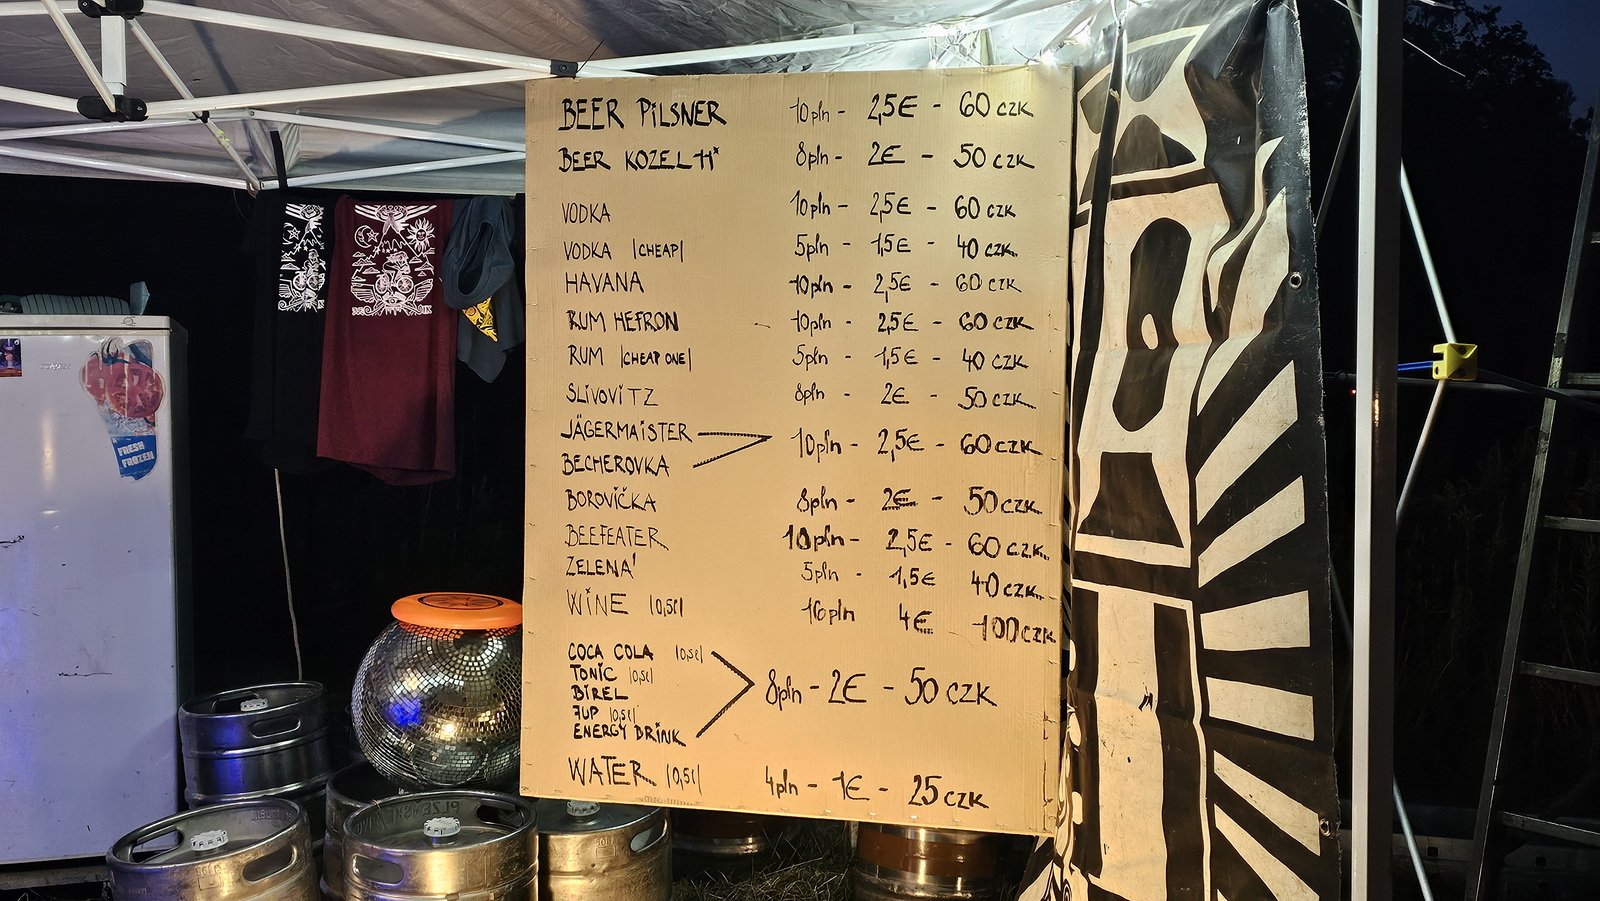 BEER PiLSNER 10pln - 2,5€ - 60 CZK
BEER KOZEL 11° 8pln - 2€ - 50 CZK
VODKA 10pln - 2,5€ - 60 CZK
VODKA |CHEAP| 5pln - 1,5€ - 40 CZK
HAVANA 10pln - 2,5€ - 60 CZK
RUM HEFRON 10pln - 2,5€ - 60 CZK
RUM |CHEAP ONE| 5pln - 1,5€ - 40 CZK
SLiVOViTZ 8pln - 2€ - 50 CZK
JÄGERMAiSTER
BECHEROVKA 10pln - 2,5€ - 60 CZK
BOROViČKA 8pln - 2€ - 50 CZK
BEEFEATER 10pln - 2,5€ - 60 CZK
ZELENÁ 5pln - 1,5€ 40 CZK
WiNE |0,5l| 16pln 4€ 100 CZK
COCA COLA |0,5l|
TONiC |0,5l|
BiREL
7UP |0,5l|
ENERGY DRiNK 8pln - 2€ - 50 CZK
WATER |0,5l| 4pln - 1€ - 25 CZK
FRESH
FROZEN